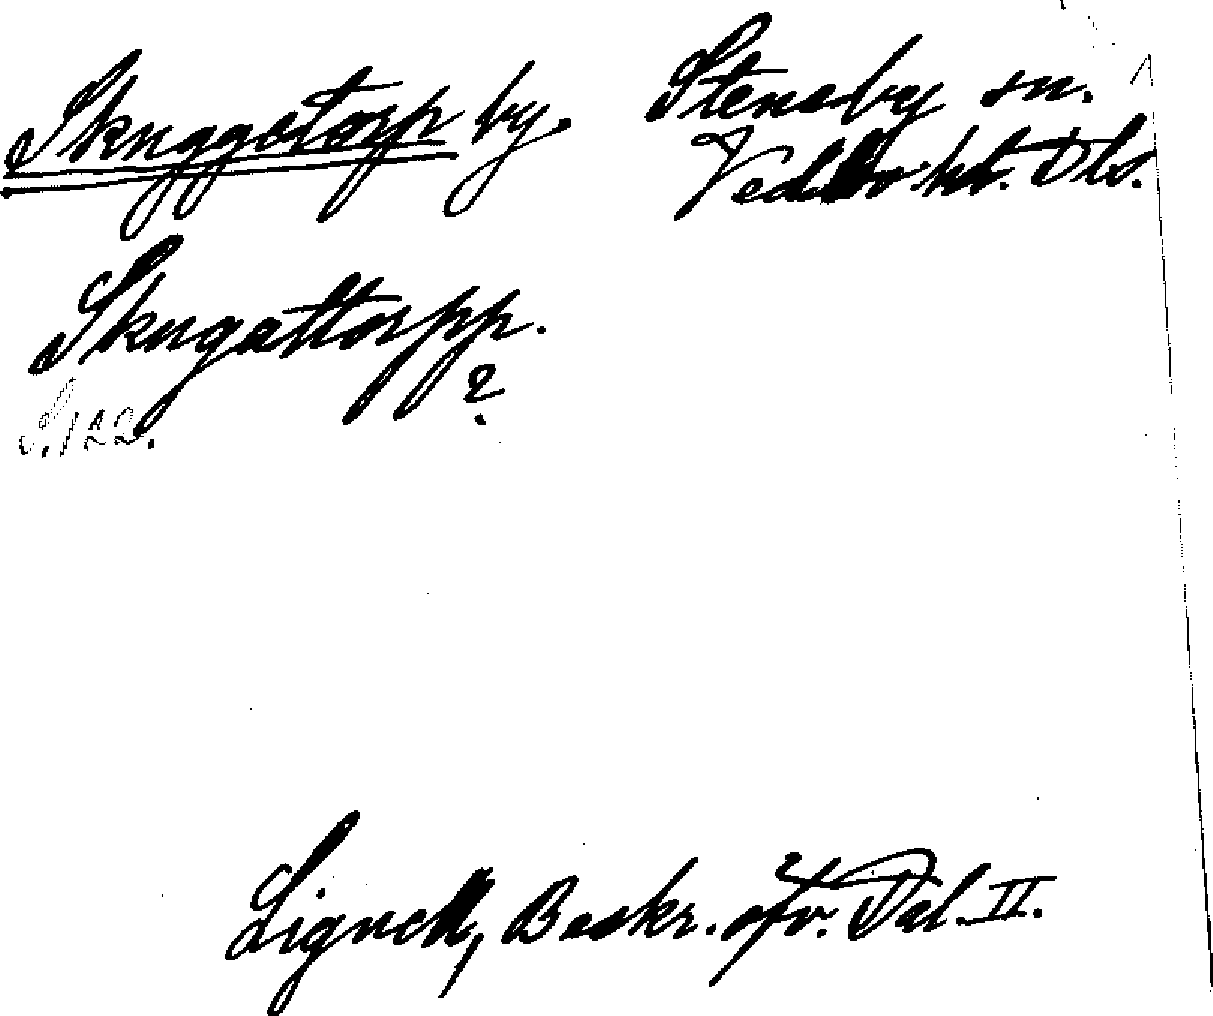 Skuggetorp by.
Steneby sn.
Vedbo hd. Dls.
Skugattorpp.
?
S. 122.
Lignell, Beskr. öfv. Dal. II.